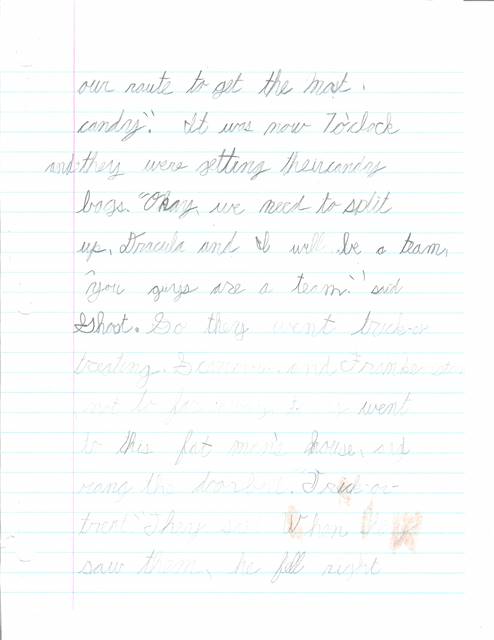 our route to get the most
candy". It was now 7o'clock
and they were getting their candy
bags. "Okay, we need to split
up, Dracula and I will be a team,
"you guys are a team." said
Ghost. So they went trick-or
treating. and Franken
went
to this fat man's house, and
rang the doorbell. "Trick-or-
treat" They said When he
saw them, he fell right